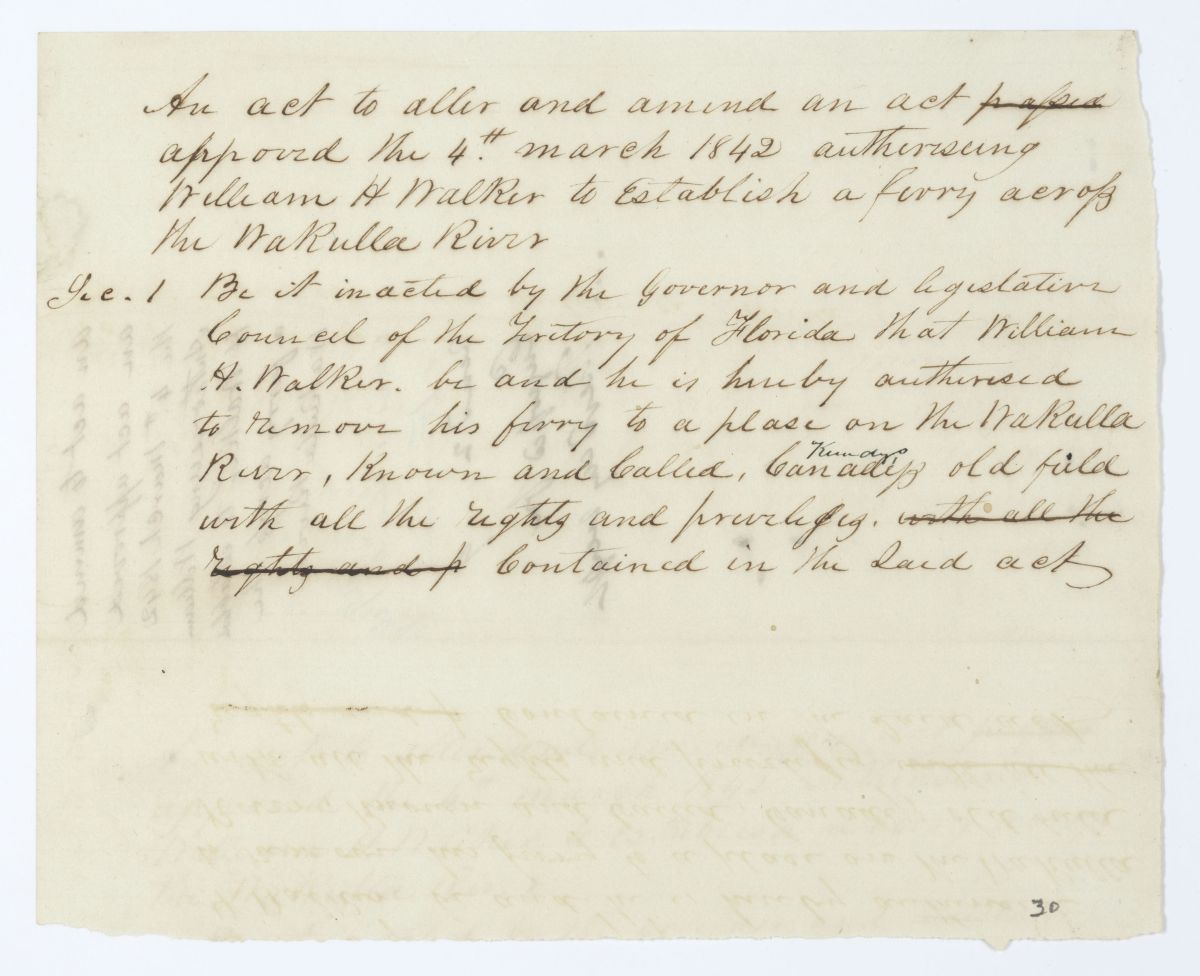 An act to alter and amend an act passed
appoved the 4th. march 1842 autheriseing
William H Walker to Establish a ferry across
the WaKulla River
Sec. 1 Be it inacted by the Governor and legislative
Council of the Teritory of Florida that William
H. Walker. be and he is hereby autherised
to remove his ferry to a plase on the WaKulla
River, Known and Called, Canadys old field
with all the rights and privileges. with all the
rights and p Contained in the Said act
30